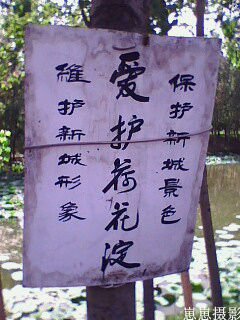 保护新城景色
爱护荷花淀
維护新城形象
崽崽摄影